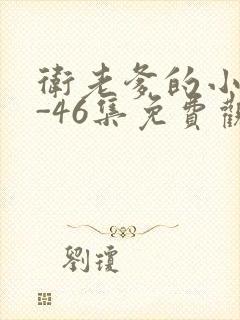 衛老爹的小
-46集免費觀
劉瓊